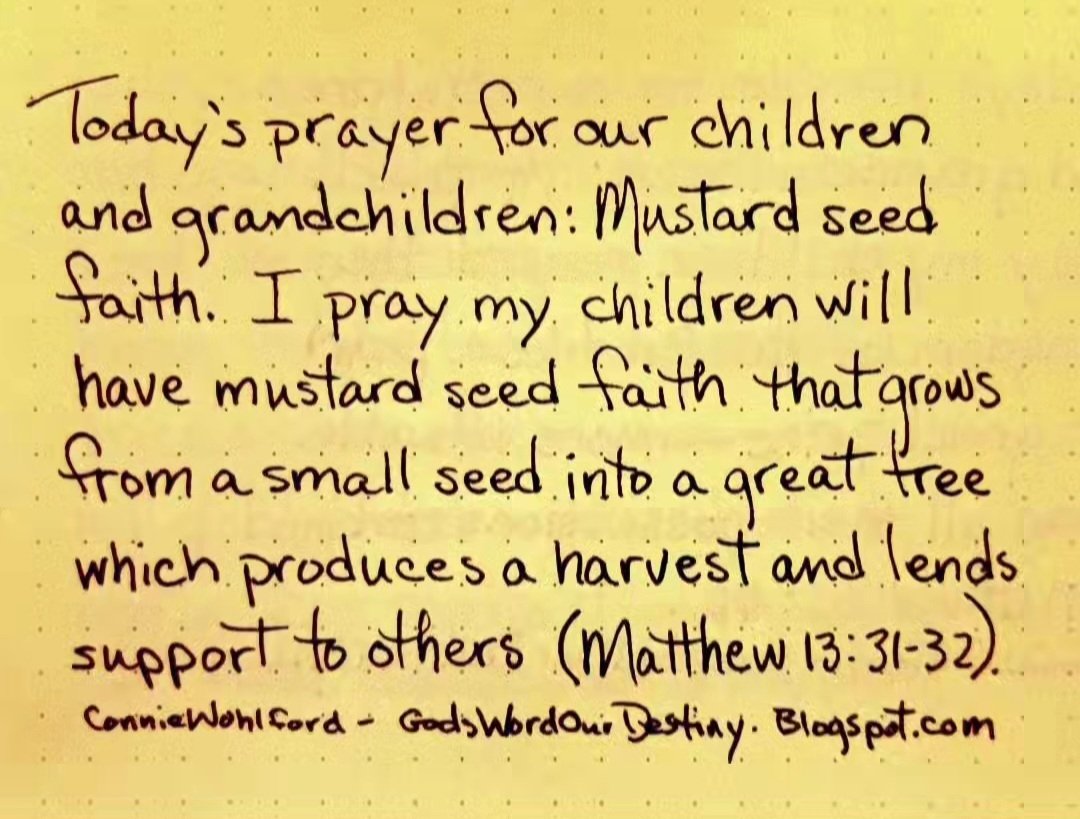 Today's prayer for our children
and grandchildren: Mustard seed
faith. I pray my children will
have mustard seed faith that grows
from a small seed into a great tree
which produces a harvest and lends
support to others (Matthew 13:31-32).
ConnieWohlford - GodsWordOurDestiny. Blogspot.com